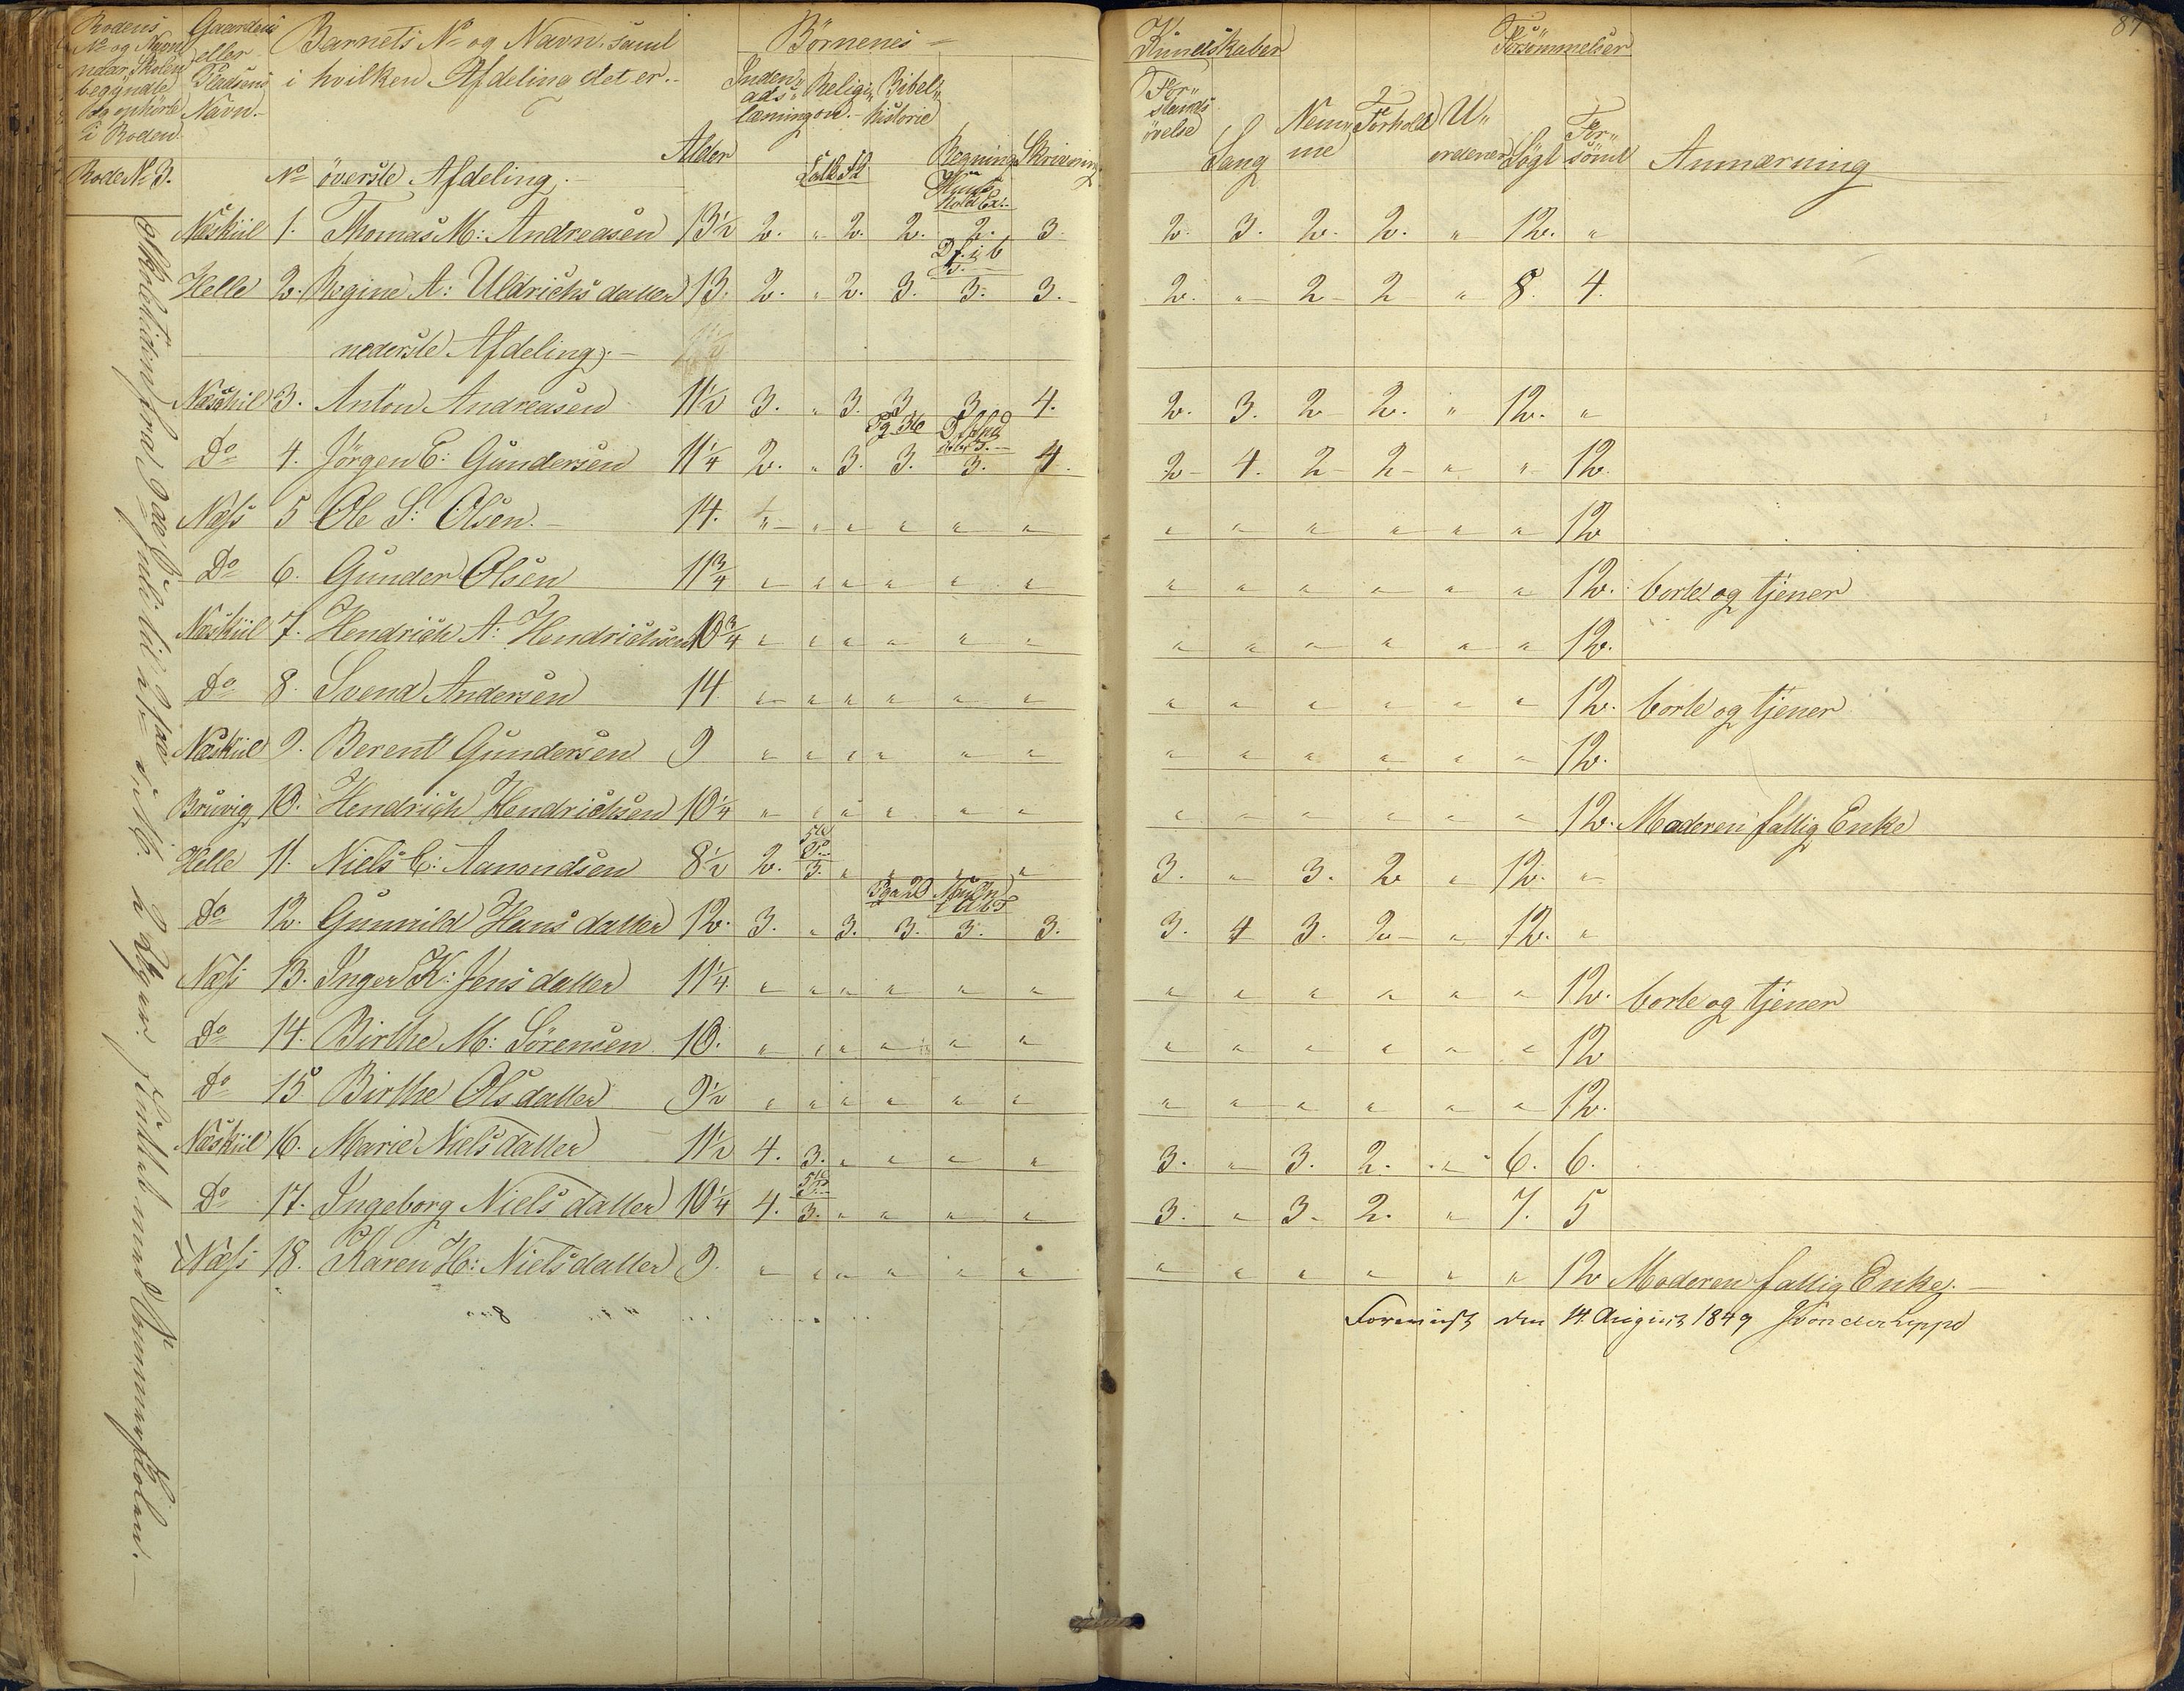 Rodens Gaardens Barnets No og Navn, samt Börnenes Kundskaber Forsömmelser 87
No og Navn eller i hvilken Afdeling det er.
naar Skolen Pladsens
begyndte Navn.
og ophörte
i Roden
Alder Indenads læsning Religion Bibelhistorie Regning Skrivning Forstands övelse Sang Nemme Forhold Uordener Sögt Forsömt Anmærkning
Rode No 3. No överste Afdeling.
Næskiil 1. Thomas M: Andreasen 13½ 2. " 2. 2. 2. 3. 2. 3. 2. 2. " 12. "
Helle 2. Regine A: Uldrichsdatter 13. 2. " 2. 3. 3. 3. 2. " 2 2 " 8. 4.
nederste Afdeling.
Næskiil 3. Anton Andreasen 11½ 3. " 3. 3 3. 4. 2. 3. 2 2. " 12. "
Do 4. Jörgen C: Gundersen 11¼ 2. " 3. 3. 3. 4. 2 4. 2 2 " " 12.
Næss 5 Ole S: Olsen. 14. " " " " " " " " " " " " 12
Do 6. Gunder Olsen 11¾ " " " " " " " " " " " " 12. borte og tjener
Næskiil 7. Hendrich A: Hendrichsen 10¾ " " " " " " " " " " " " 12.
Do 8. Svend Andersen 14 " " " " " " " " " " " " 12. borte og tjener
Næskiil 9. Berent Gundersen 9 " " " " " " " " " " " " 12.
Bruvig 10. Hendrich Hendrichsen 10¼ " " " " " " " " " " " " 12. Moderen fattig Enke
Helle 11. Niels C: Aamondsen 8½ 2. 3. " " " " 3. " 3. 2 " 12. "
Do 12. Gunnild Hansdatter 12. 3. " 3. 3. 3. 3. 3. 4 3. 2 " 12. "
Næss 13. Inger K: Jensdatter 11¼ " " " " " " " " " " " " 12. borte og tjener
Do 14. Birthe M: Sörensen 10. " " " " " " " " " " " " 12
Do 15 Birthe Olsdatter 9½ " " " " " " " " " " " " 12.
Næskiil 16. Marie Nielsdatter 11½ 4. 3. " " " " 3. " 3. 2. " 6. 6.
Do 17. Ingeborg Nielsdatter 10¼ 4. 3. " " " " 3. " 3. 2. " 7. 5
Næss 18. Karen H: Nielsdatter 9. " " " " " " " " " " " " 12 Moderen fattig Enke.
den 14 August 1849